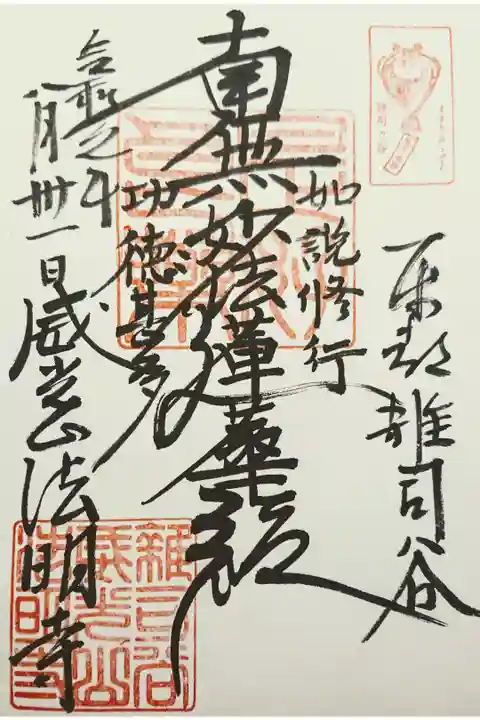 東都雑司谷
如説修行
南無妙法蓮華経
功徳甚多
令和元年
八月卅一日威光山法明寺
雑司谷
威光山
法明寺